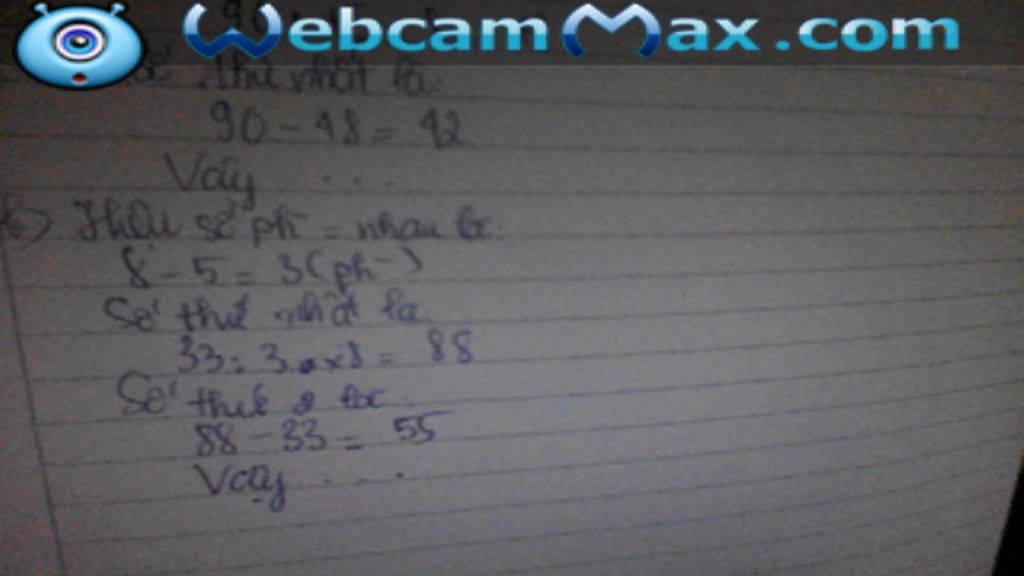 WebcamMax.com
thứ nhất là:
90 - 48 = 42
Vậy . . . .
b) Hiệu số ph = nhau là:
8 - 5 = 3 (ph)
Số thứ nhất là
33 : 3 x 8 = 88
Số thứ 2 là:
88 - 33 = 55
Vậy . . .